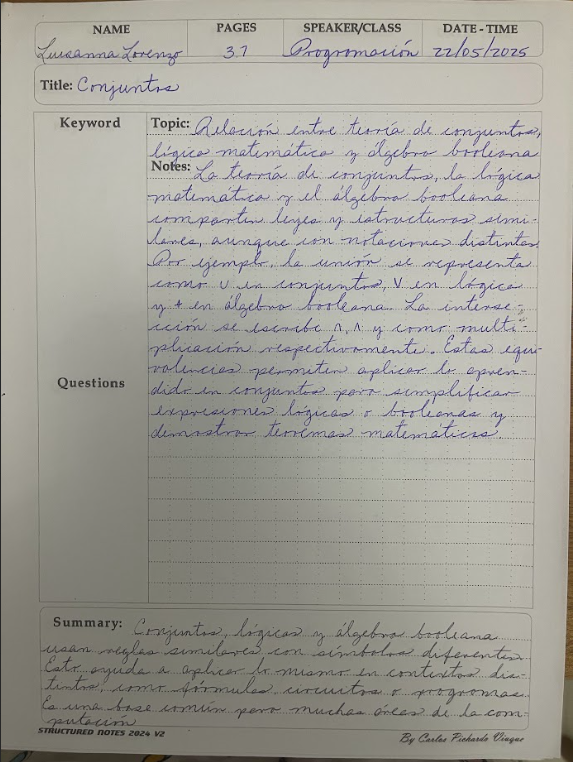 NAME PAGES SPEAKER/CLASS DATE-TIME
Luisanna Lorenzo 3.7 Programación 22/05/2025
Title: Conjuntos
Keyword
Topic: Relación entre teoría de conjuntos,
lógica matemática y álgebra booleana
Notes: La teoría de conjuntos, la lógica
matemática y el álgebra booleana
comparten leyes y estructuras simi-
lares, aunque con notaciones distintas.
Por ejemplo, la unión se representa
como ∪ en conjuntos, ∨ en lógica
y + en álgebra booleana. La interse-
cción se escribe ∩, ∧ y como multi-
plicación respectivamente. Estas equi-
valencias permiten aplicar lo apren-
Questions
dido en conjuntos para simplificar
expresiones lógicas o booleanas y
demostrar teoremas matemáticos.
Summary: Conjuntos, lógicas y álgebra booleana
usan reglas similares con símbolos diferentes.
Esto ayuda a aplicar lo mismo en contextos dis-
tintos, como fórmulas, circuitos o programas.
Es una base común para muchas áreas de la com-
putación
STRUCTURED NOTES 2024 V2
By Carlos Pichardo Viuque